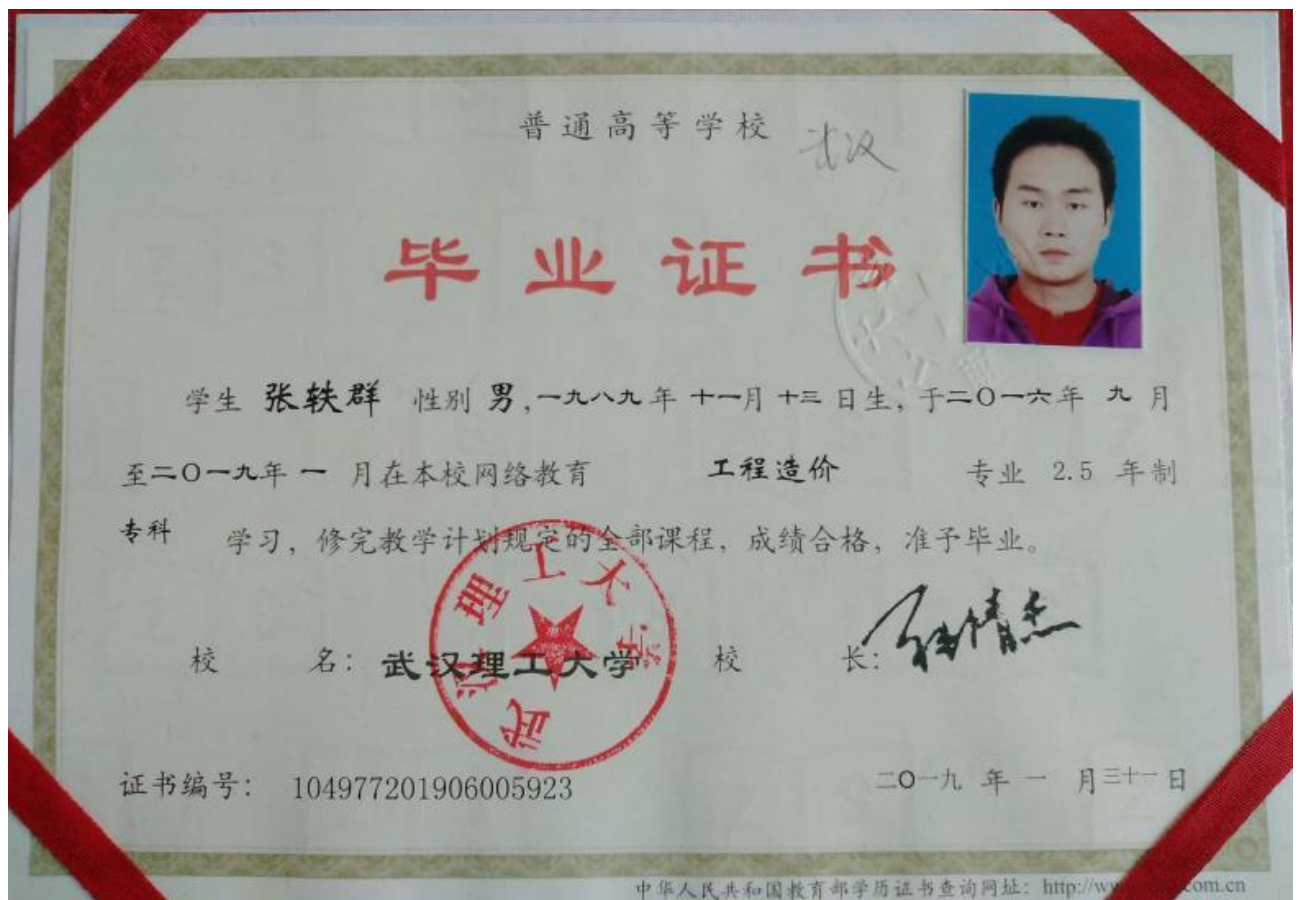 普通高等学校
武汉
毕业证书
学生 张轶群 性别 男,一九八九年 十一月 十三 日生, 于二〇一六年 九 月
至二〇一九年 一 月在本校网络教育 工程造价 专业 2.5 年制
专科 学习, 修完教学计划规定的全部课程, 成绩合格, 准予毕业。
武汉理工大学
校 名: 武汉理工大学 校 长:
证书编号: 104977201906005923 二〇一九 年 一 月三十一日
中华人民共和国教育部学历证书查询网址: http://w
com.cn